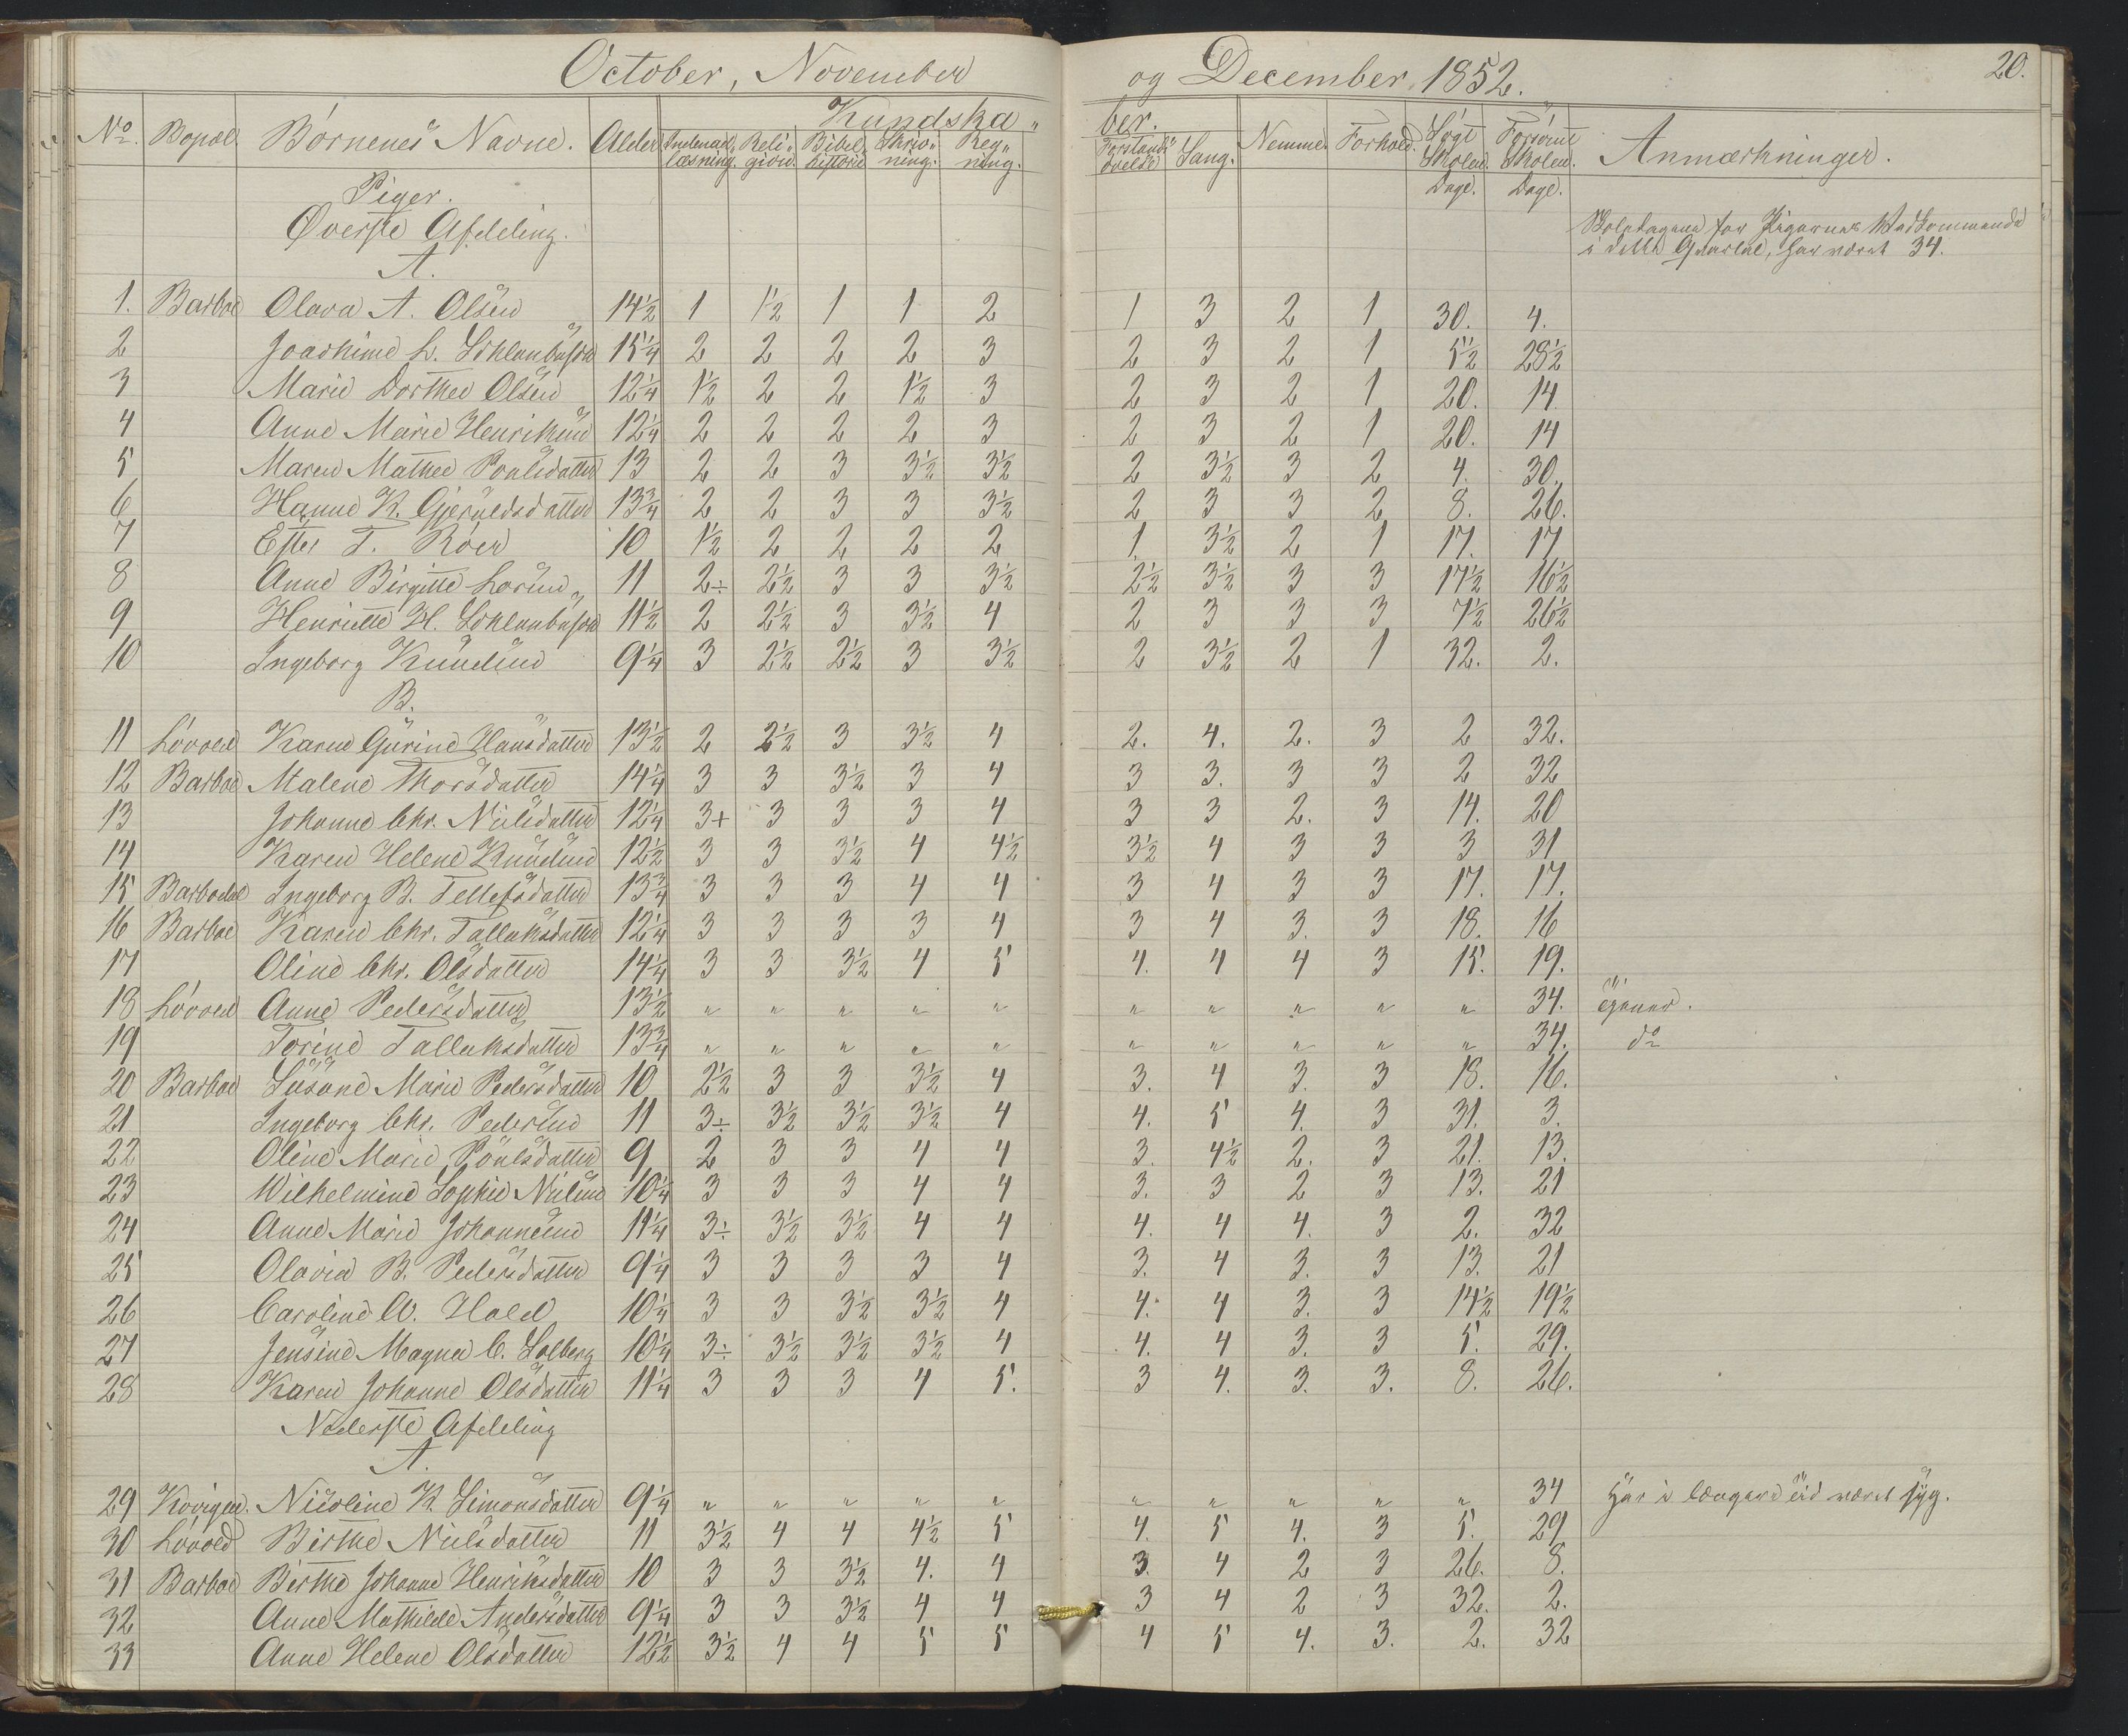 October, November og December 1852. 20.
No. Bopæl. Børnenes Navne. Alder Kundskaber. Nemme. Forhold. Søgt Skolen. Dage. Forsømt Skolen. Dage. Anmærkninger.
Indenadlæsning. Religion. Bibelhistorie Skrivning. Regning. Forstandsøvelse Sang.
Piger.
Øverste Afdeling.
Skoledagene for Pigernes Vedkommende
i dette Qvartal, har været 34.
A.
1. Barboe Olava A. Olsen 14½ 1 1½ 1 1 2 1 3 2 1 30. 4.
2 Joachime L. 15¼ 2 2 2 2 3 2 3 2 1 5½ 28½
3 Marie Dorthee Olsen 12¼ 1½ 2 2 1½ 3 2 3 2 1 20. 14
4 Anne Marie Henriksen 12¼ 2 2 2 2 3 2 3 2 1 20. 14
5 Maren Mathee Poulsdatter 13 2 2 3 3½ 3½ 2 3½ 3 2 4. 30.
6 Hanne K. Gjeruldsdatter 13¾ 2 2 3 3 3½ 2 3 3 2 8. 26.
7 Ester T. Roer 10 1½ 2 2 2 2 1 3½ 2 1 17. 17
8 Anne Birgitte Larsen 11 2÷ 2½ 3 3 3½ 2½ 3½ 3 3 17½ 16½
9 Henriette H. 11½ 2 2½ 3 3½ 4 2 3 3 3 7½ 26½
10 Ingeborg Knudsen 9¼ 3 2½ 2½ 3 3½ 2 3½ 2 1 32. 2.
B.
11 Løvold Karen Gurine Hansdatter 13½ 2 2½ 3 3½ 4 2. 4. 2. 3 2 32.
12 Barboe Malene Thorsdatter 14¼ 3 3 3½ 3 4 3 3. 3 3 2 32
13 Johanne Chr. Nielsdatter 12¼ 3+ 3 3 3 4 3 3 2. 3 14. 20
14 Karen Helene Knudsen 12½ 3 3 3½ 4 4½ 3½ 4 3 3 3 31
15 Barbodal Ingeborg B. Tellefsdatter 13¾ 3 3 3 4 4 3 4 3 3 17. 17.
16 Barboe Karen Chr. Tallaksdatter 12¼ 3 3 3 3 4 3 4 3. 3 18. 16
17 Oline Chr. Olsdatter 14¼ 3 3 3½ 4 5 4. 4 4 3 15. 19.
18 Løvold Anne Pedersdatter 13½ " " " " " " " " " " 34. tjener.
19 Torine Tallaksdatter 13¾ " " " " " " " " " " 34. do
20 Barboe Susane Marie Pedersdatter 10 2½ 3 3 3½ 4 3. 4 3. 3 18. 16.
21 Ingeborg Chr. Pedersen 11 3÷ 3½ 3½ 3½ 4 4. 5 4. 3 31. 3.
22 Oline Marie Poulsdatter 9 2 3 3 4 4 3. 4½ 2. 3 21. 13.
23 Wilhelmine Sophie Nielsen 10¼ 3 3 3 4 4 3. 3 2 3 13. 21
24 Anne Marie Johannesen 11¼ 3÷ 3½ 3½ 4 4 4. 4 4. 3 2. 32
25 Olavia B. Pedersdatter 9¼ 3 3 3 3 4 3. 4 3. 3 13. 21
26 Caroline W. Hold 10¼ 3 3 3½ 3½ 4 4. 4 3. 3 14½ 19½
27 Jensine Magnea C. Solberg 10¼ 3÷ 3½ 3½ 3½ 4 4. 4 3. 3 5. 29.
28 Karen Johanne Olsdatter 11¼ 3 3 3 4 5. 3 4. 3. 3. 8. 26.
Nederste Afdeling
A.
29 Kovigen. Nicoline K. Simonsdatter 9¼ " " " " " " " " " " 34 Har i længere tid været syg.
30 Løvold Birthe Nielsdatter 11 3½ 4 4 4½ 5 4. 5 4. 3 5. 29
31 Barboe Birthe Johanne Henriksdatter 10 3 3 3½ 4. 4 3. 4 2 3 26. 8.
32 Anne Mathilde Andersdatter 9¼ 3 3 3½ 4 4 3 4 2 3 32. 2.
33 Anne Helene Olsdatter 12½ 3½ 4 4 5 5 4 5 4. 3. 2. 32